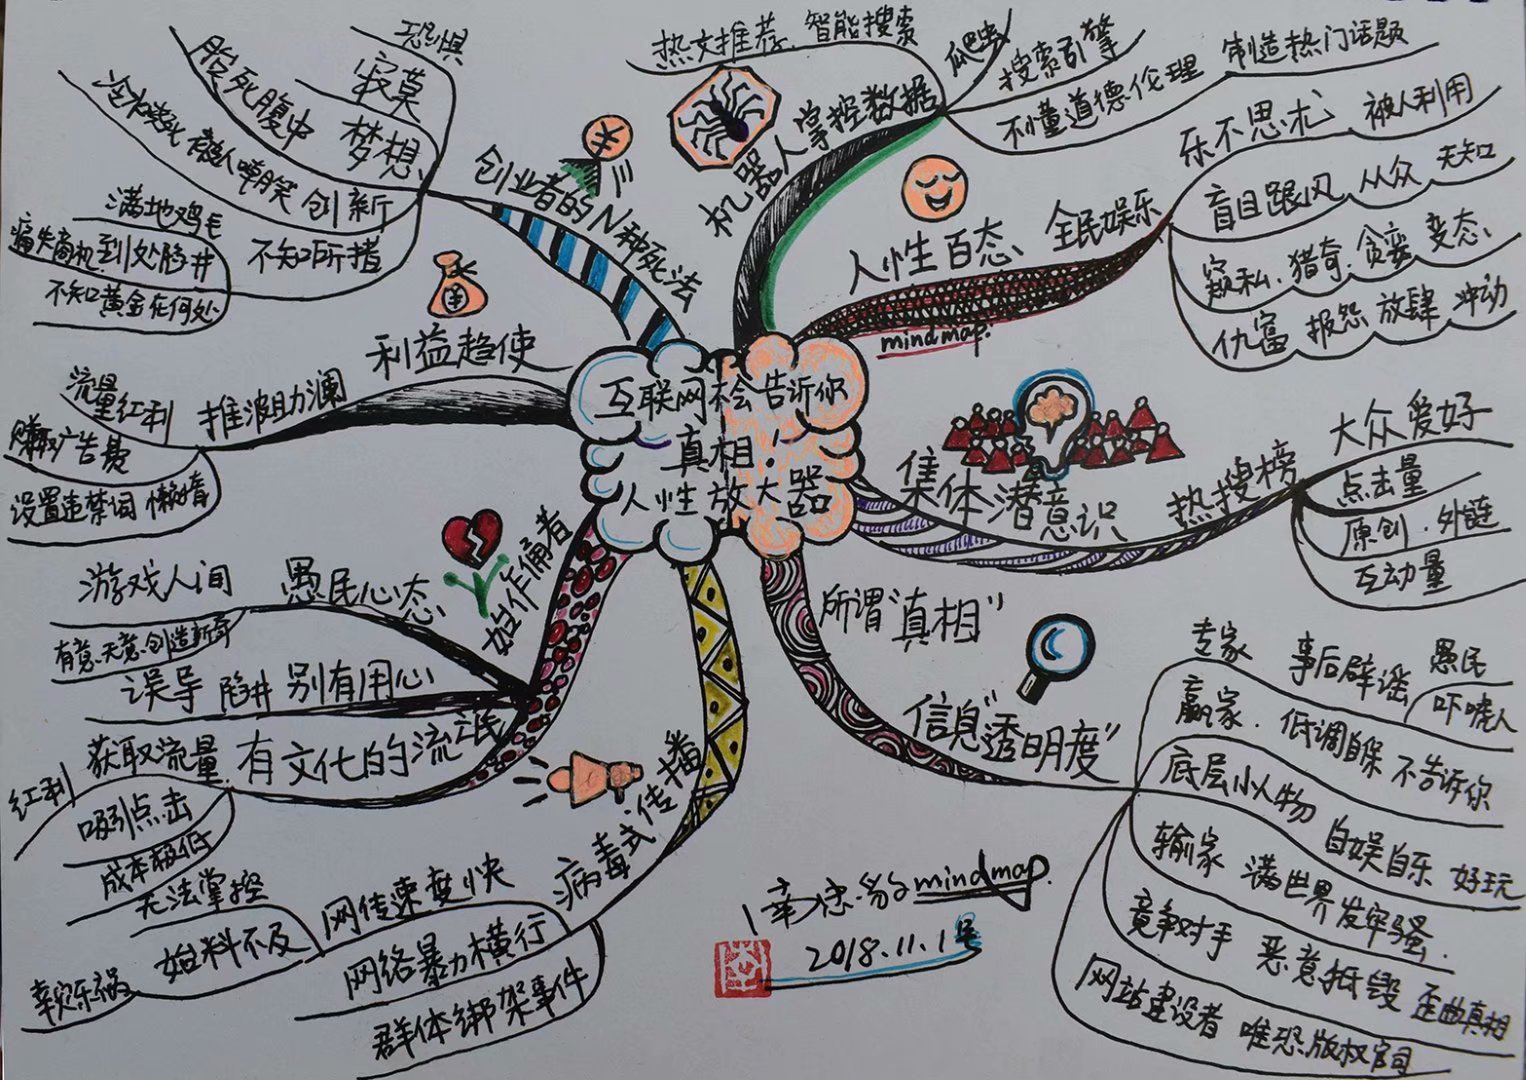 互联网不会告诉你
真相!
人性放大器
机器人掌控数据
热文推荐、智能搜索
爬虫
搜索引擎
不懂道德伦理 制造热门话题
人性百态 全民娱乐
mindmap.
乐不思术 被人利用
盲目跟风 从众 无知
窥私、猎奇、贪婪 变态、
仇富 报怨 放肆 冲动
集体潜意识 热搜榜
大众爱好
点击量
原创、外链
互动量
所谓“真相”
信息“透明度”
专家 事后辟谣 愚民
吓唬人
赢家、低调自保 不告诉你
底层小人物 自娱自乐 好玩
输家 满世界发牢骚
竞争对手 恶意抵毁 歪曲真相
网站建设者 唯恐版权官司
病毒式传播
网传速度快
无法掌控
始料不及
网络暴力横行
群体绑架事件
始作俑者
愚民心态
游戏人间
有意、无意、创造新奇
别有用心
误导 陷井
有文化的流氓
获取流量
红利
吸引点击
成本极低
利益趋使
推波助澜
流量红利
赚取广告费
设置违禁词 懒惰
创业者的N种死法
恐惧
寂寞
梦想
胎死腹中
创新
冷水浇死 被人嘲笑
不知所措
满地鸡毛
痛失商机 到处陷井
不知黄金在何处
mindmap.
2018.11.1号